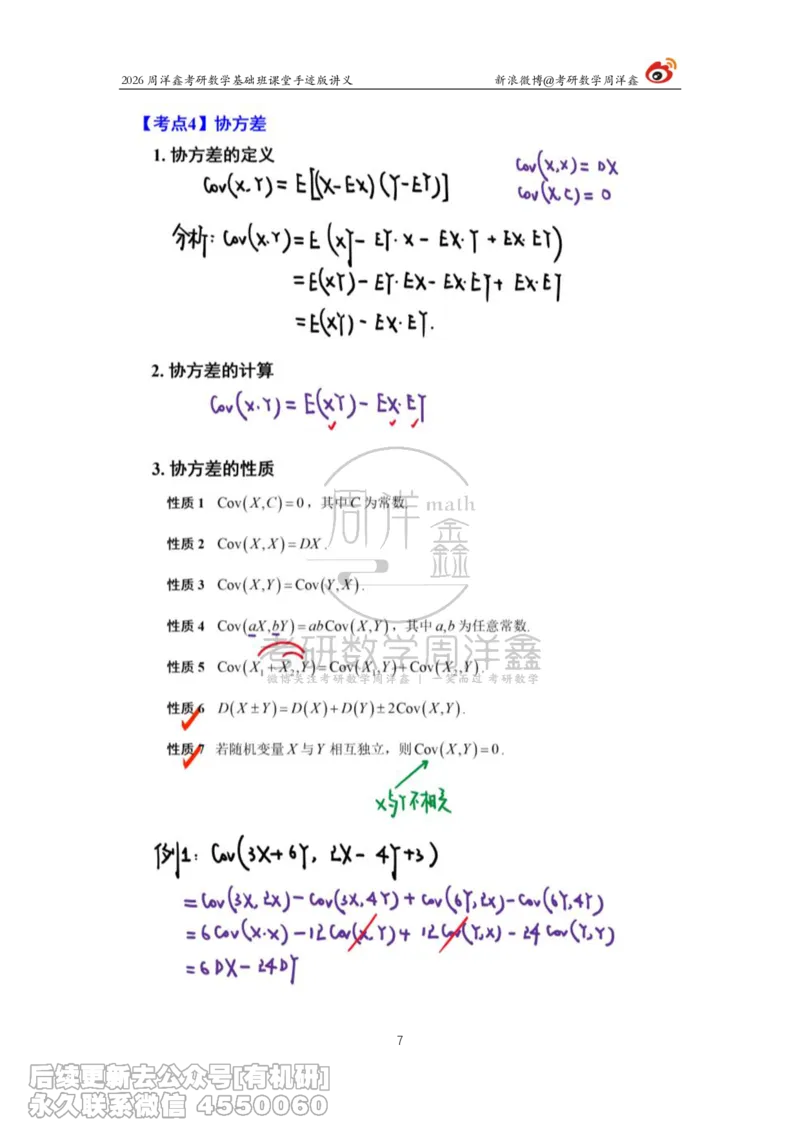 2026 周洋鑫考研数学基础班课堂手迹版讲义 新浪微博@考研数学周洋鑫
【考点4】协方差
1. 协方差的定义
Cov(X,Y) = E[(X-EX)(Y-EY)]
Cov(X,X) = DX
Cov(X,C) = 0
分析: Cov(X,Y) = E(XY - EY·X - EX·Y + EX·EY)
= E(XY) - EY·EX - EX·EY + EX·EY
= E(XY) - EX·EY.
2. 协方差的计算
Cov(X,Y) = E(XY) - EX·EY
3. 协方差的性质
性质 1 Cov(X,C)=0，其中C 为常数.
性质 2 Cov(X,X)=DX.
性质 3 Cov(X,Y)=Cov(Y,X).
性质 4 Cov(aX,bY)=abCov(X,Y)，其中 a,b 为任意常数.
性质 5 Cov(X₁+X₂,Y)=Cov(X₁,Y)+Cov(X₂,Y).
性质 6 D(X±Y)=D(X)+D(Y)±2Cov(X,Y).
性质 7 若随机变量X与Y 相互独立，则Cov(X,Y)=0.
X与Y不相关
周洋鑫 math
考研数学周洋鑫
微博关注考研数学周洋鑫 | 一笑而过 考研数学
例1: Cov(3X+6Y, 2X-4Y+3)
= Cov(3X,2X) - Cov(3X,4Y) + Cov(6Y,2X) - Cov(6Y,4Y)
= 6Cov(X,X) - 12Cov(X,Y) + 12Cov(Y,X) - 24Cov(Y,Y)
= 6DX - 24DY
7
后续更新去公众号[有机研]
永久联系微信 4550060